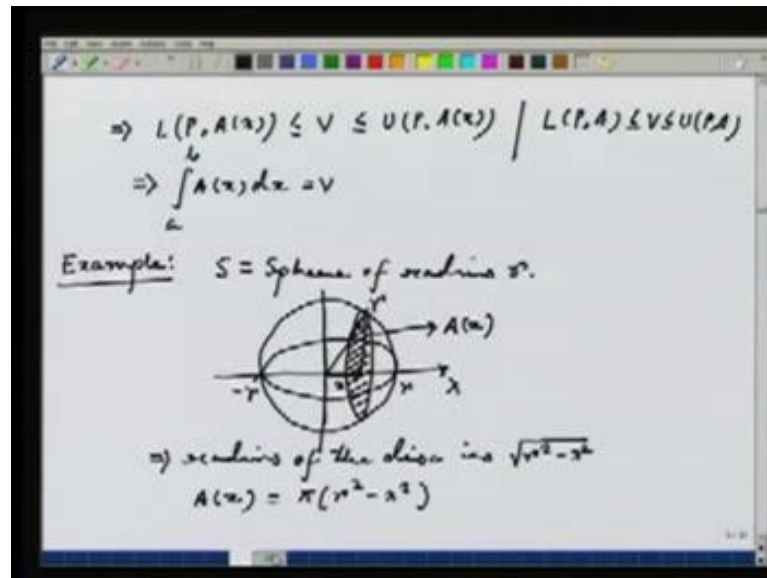 ⇒ L(P, A(x)) ≤ V ≤ U(P, A(x)) | L(P,A) ≤ V ≤ U(P,A)
⇒ ∫_a^b A(x) dx = V
Example: S = Sphere of radius r.
r
A(x)
-r x r X
⇒ radius of the disc is √(r² - x²)
A(x) = π(r² - x²)